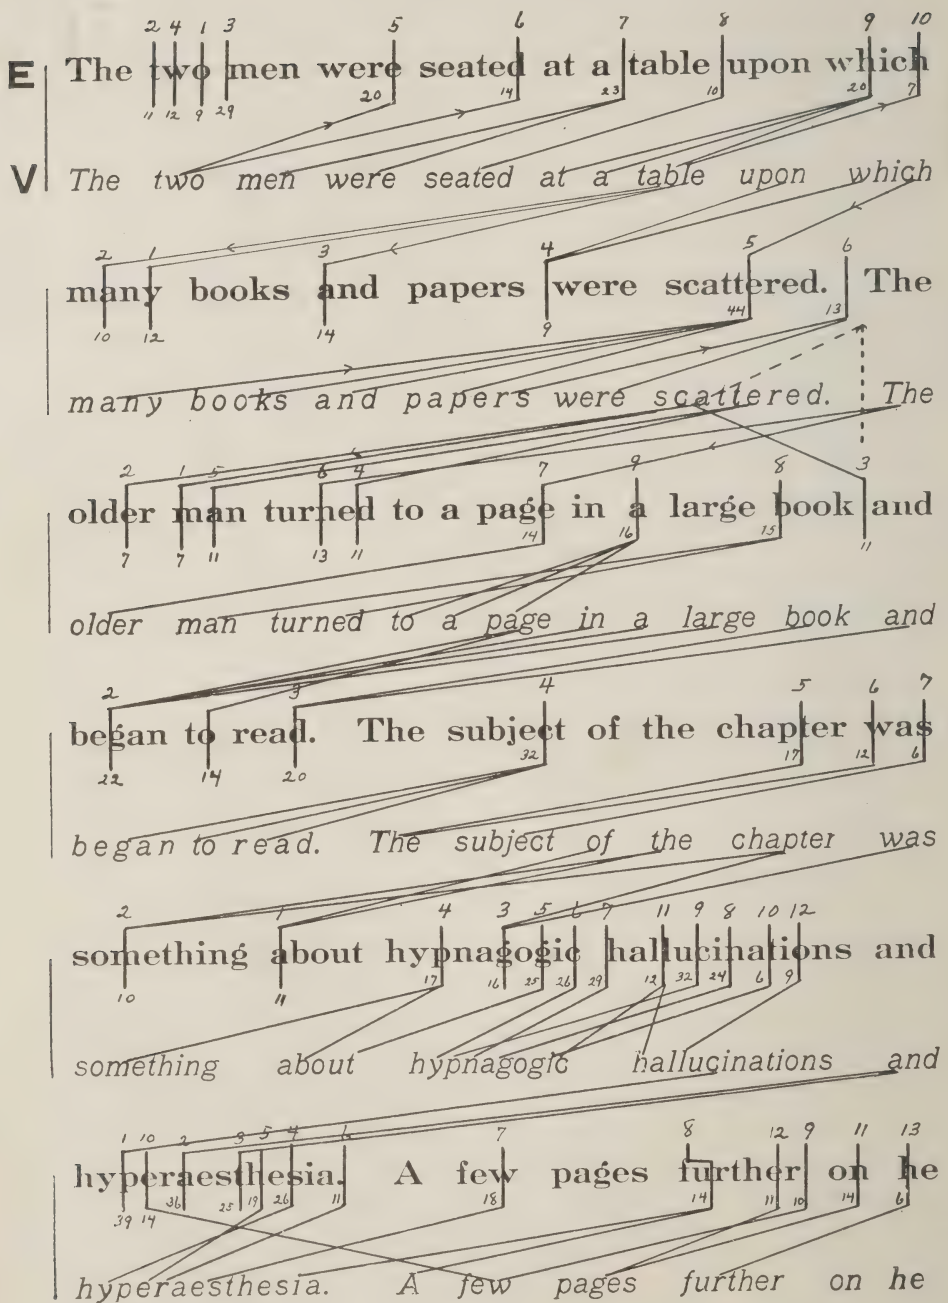 2 4 1 3 5 6 7 8 9 10
E The two men were seated at a table upon which
11 12 9 29 20 14 23 10 20 7
V The two men were seated at a table upon which
2 1 3 4 5 6
many books and papers were scattered. The
10 12 14 9 44 13
many books and papers were scattered. The
2 1 5 6 4 7 9 8 3
older man turned to a page in a large book and
7 7 11 13 11 14 16 15 11
older man turned to a page in a large book and
2 3 4 5 6 7
began to read. The subject of the chapter was
22 14 20 32 17 12 6
began to read. The subject of the chapter was
2 1 4 3 5 6 7 11 9 8 10 12
something about hypnagogic hallucinations and
10 11 17 16 25 26 29 12 32 24 6 9
something about hypnagogic hallucinations and
1 10 2 3 5 4 6 7 8 12 9 11 13
hyperaesthesia. A few pages further on he
39 14 36 25 19 26 11 18 14 11 10 14 6
hyperaesthesia. A few pages further on he